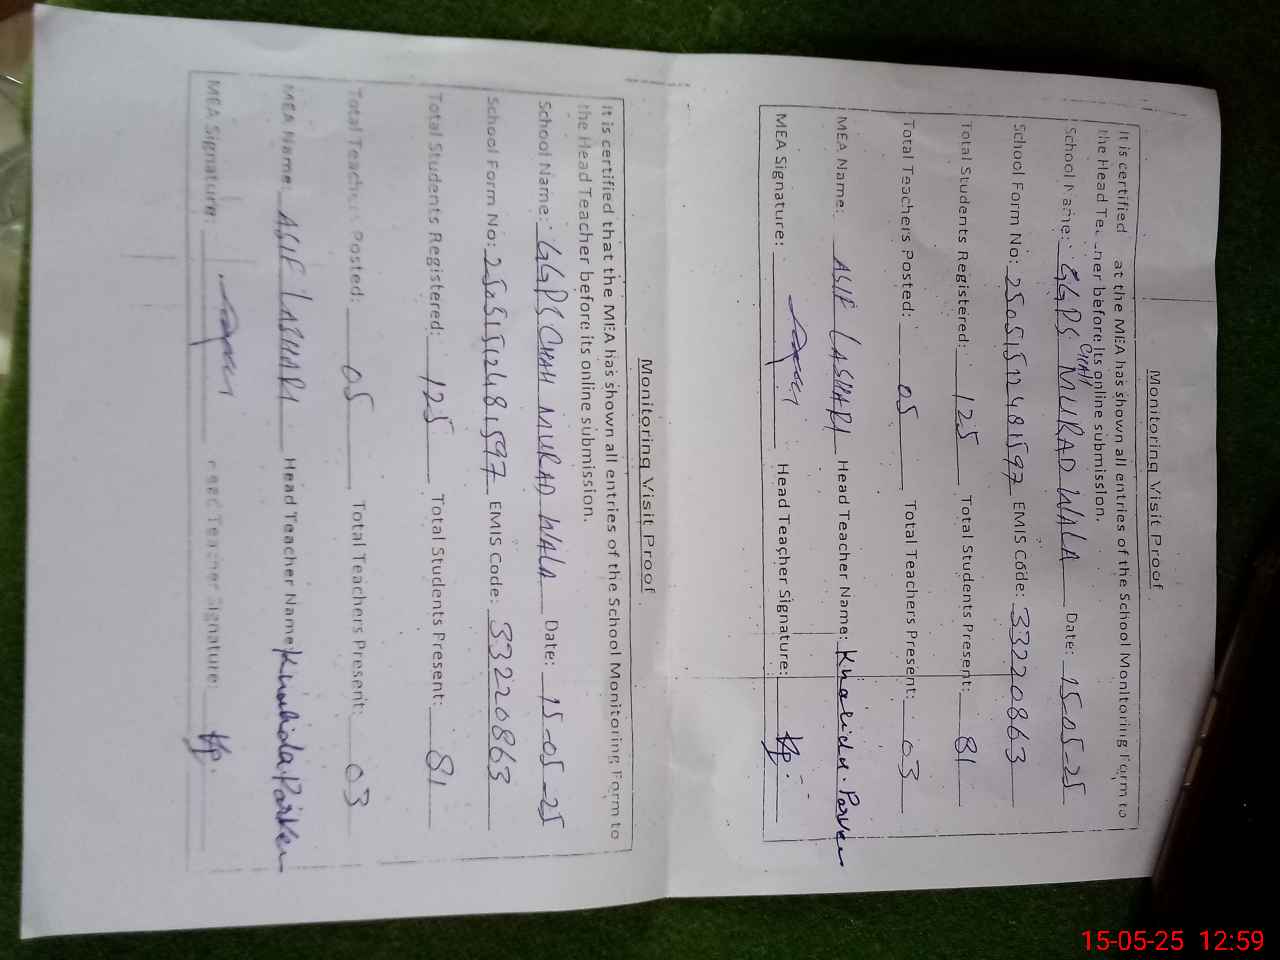 Monitoring Visit Proof
It is certified at the MEA has shown all entries of the School Monitoring Form to
the Head before its online submission.
School Name: GGPS CHAH MURAD WALA Date: 15-05-25
School Form No: 25051512481597 EMIS Code: 33220863
Total Students Registered: 125 Total Students Present: 81
Total Teachers Posted: 05 Total Teachers Present: 03
MEA Name: ASIF LASHARI Head Teacher Name: Khalida Parven
MEA Signature: Head Teacher Signature: Kp.
Monitoring Visit Proof
It is certified that the MEA has shown all entries of the School Monitoring Form to
the Head Teacher before its online submission.
School Name: GGPS CHAH MURAD WALA Date: 15-05-25
School Form No: 25051512481597 EMIS Code: 33220863
Total Students Registered: 125 Total Students Present: 81
Total Teachers Posted: 05 Total Teachers Present: 03
MEA Name: ASIF LASHARI Head Teacher Name: Khalida Parven
MEA Signature: Head Teacher Signature: Kp.
15-05-25 12:59